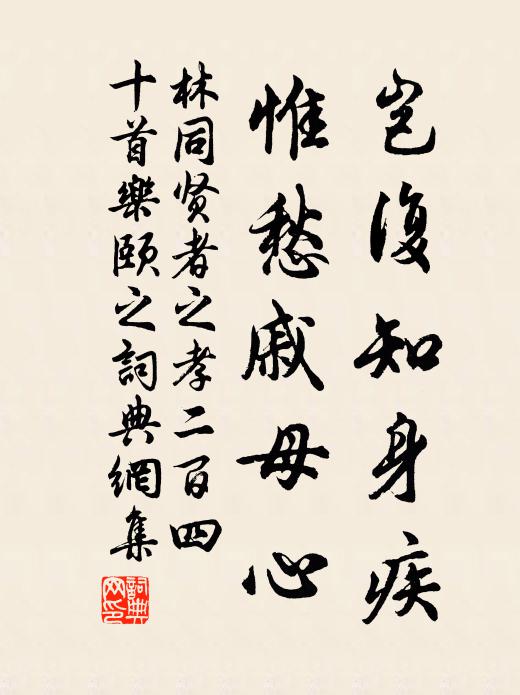 岂復知身疾
惟愁戚母心
林同贤者之孝二百四
十首樂頤之詞典網集
詞典网印